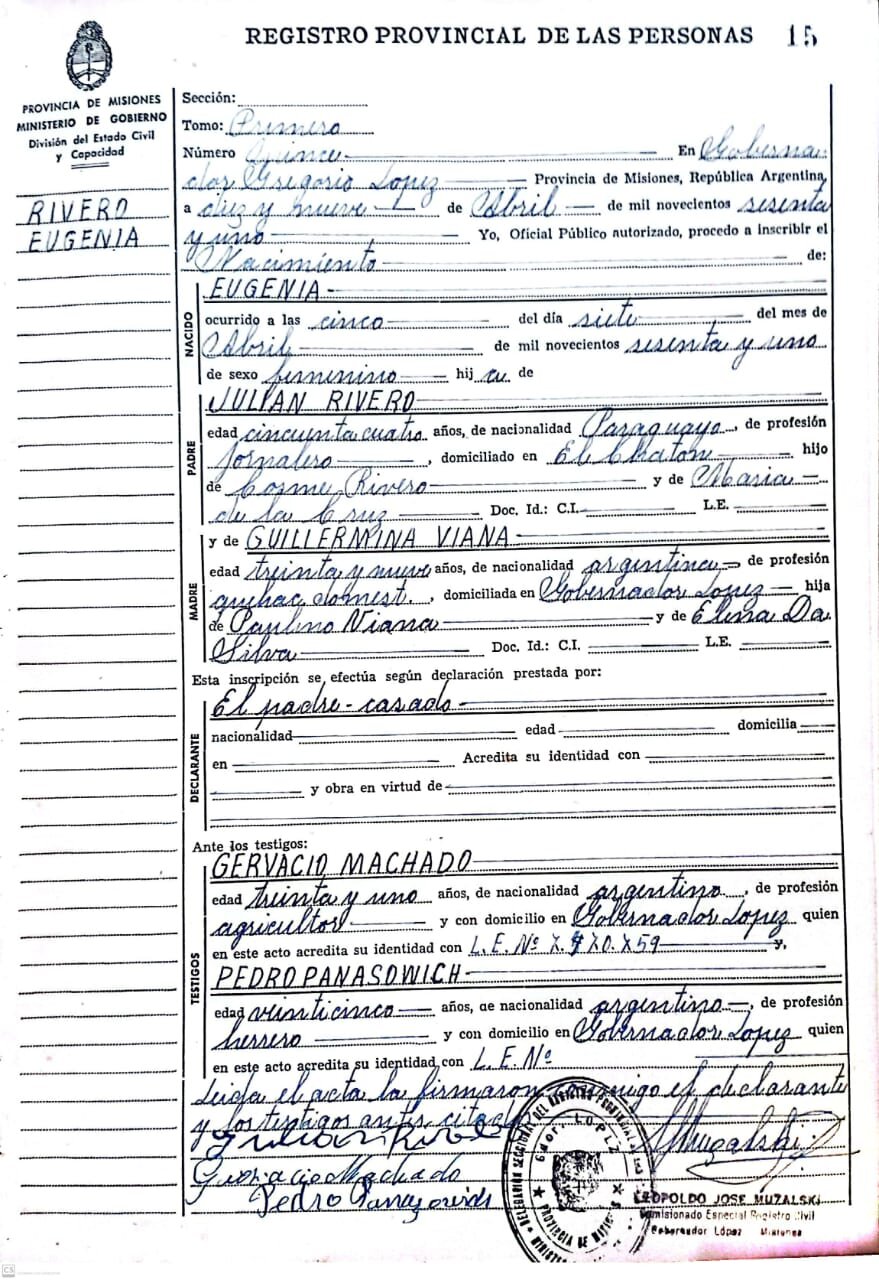 REGISTRO PROVINCIAL DE LAS PERSONAS 15
PROVINCIA DE MISIONES
MINISTERIO DE GOBIERNO
División del Estado Civil
y Capacidad
RIVERO
EUGENIA
Sección:
Tomo: Primero
Número Quince En Goberna
dor Gregorio Lopez Provincia de Misiones, República Argentina,
a diez y nueve de Abril de mil novecientos sesenta
y uno Yo, Oficial Público autorizado, procedo a inscribir el
Nacimiento de:
NACIDO
EUGENIA
ocurrido a las cinco del día siete del mes de
Abril de mil novecientos sesenta y uno
de sexo femenino hij a de
PADRE
JULIAN RIVERO
edad cincuenta cuatro años, de nacionalidad Paraguayo, de profesión
Jornalero, domiciliado en El Chaton hijo
de Cosme Rivero y de Maria
de la Cruz Doc. Id.: C.I. L.E.
MADRE
y de GUILLERMINA VIANA
edad treinta y nueve años, de nacionalidad argentina, de profesión
quehac domest., domiciliada en Gobernador Lopez hija
de Paulino Viana y de Elena Da
Silva Doc. Id.: C.I. L.E.
Esta inscripción se efectúa según declaración prestada por:
DECLARANTE
El padre - casado
nacionalidad edad domicilia
en Acredita su identidad con
y obra en virtud de
Ante los testigos:
TESTIGOS
GERVACIO MACHADO
edad treinta y uno años, de nacionalidad argentino, de profesión
agricultor y con domicilio en Gobernador Lopez quien
en este acto acredita su identidad con L.E. Nº y,
PEDRO PANASOWICH
edad veinticinco años, de nacionalidad argentino, de profesión
herrero y con domicilio en Gobernador Lopez quien
en este acto acredita su identidad con L.E. Nº
Leida el acta la firmaron conmigo el declarante
y los testigos antes citados
Julian Rivero
Muzalski
Gervacio Machado
Pedro
DELEGACIÓN SECCIONAL DEL REGISTRO PROVINCIAL DE LAS
Gdor. LOPEZ
PROVINCIA DE MISIONES
LEOPOLDO JOSE MUZALSKI
Comisionado Especial Registro Civil
Gobernador López Misiones
CS